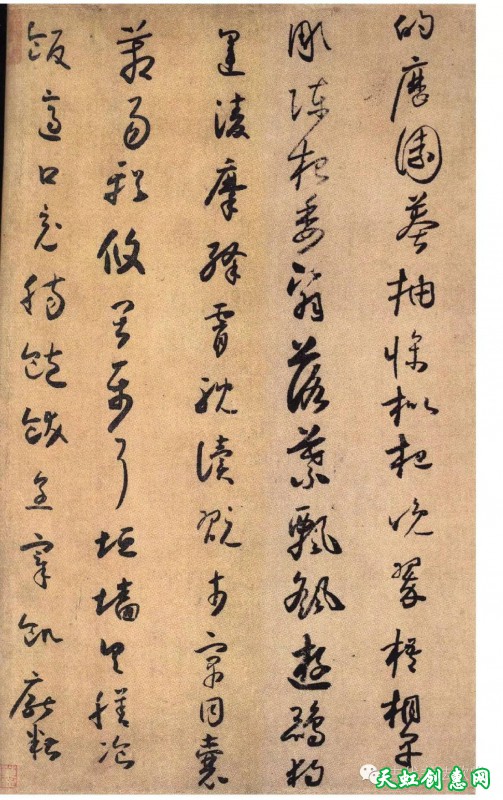 的歷園莽抽條枇杷晚翠梧桐早
凋陳根委翳落葉飄颻遊鵾獨
運凌摩絳霄耽讀翫市寓目囊
箱易輶攸畏屬耳垣牆具膳飡
飯適口充腸飽飫烹宰飢厭糟
天虹创意网